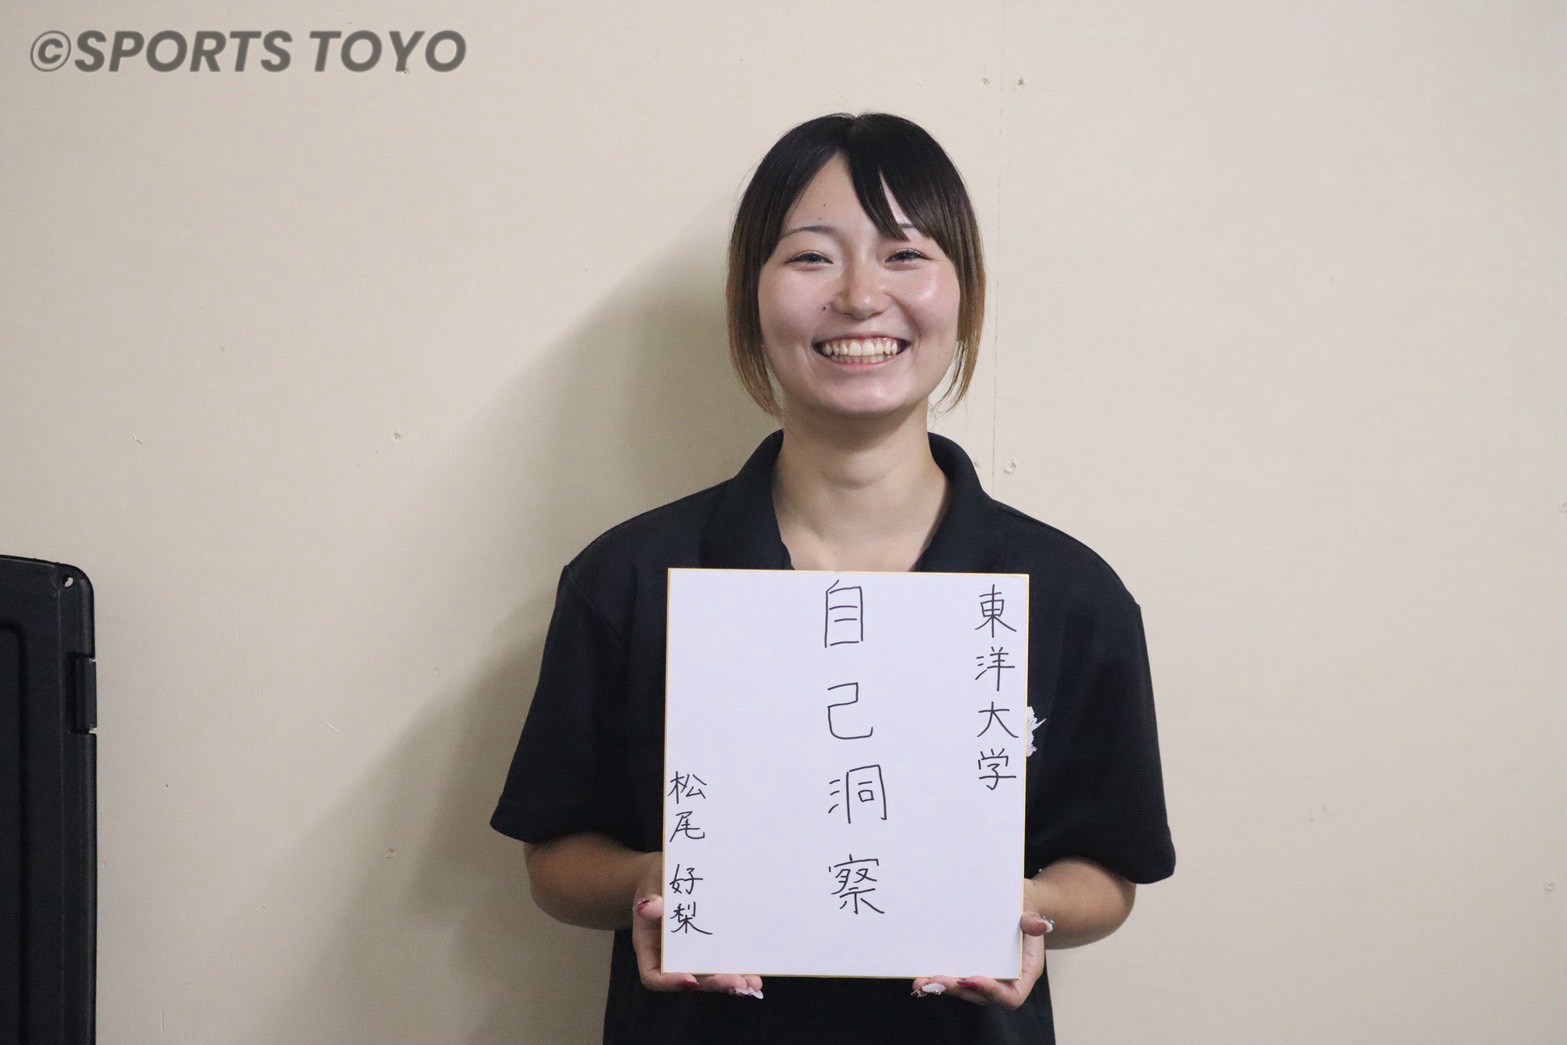 ©SPORTS TOYO
東洋大学
自己洞察
松尾 好梨